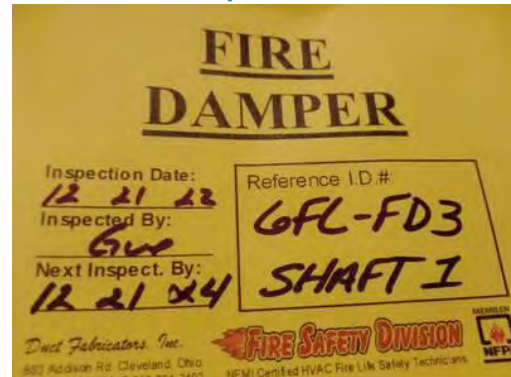 FIRE
DAMPER
Inspection Date:
12 21 22
Inspected By:
Gus
Next Inspect. By:
12 21 24
Reference I.D.#
6FL-FD3
SHAFT 1
Duct Fabricators, Inc.
883 Addison Rd. Cleveland, Ohio
FIRE SAFETY DIVISION
NEMI Certified HVAC Fire Life Safety Technicians
MEMBER
NFP